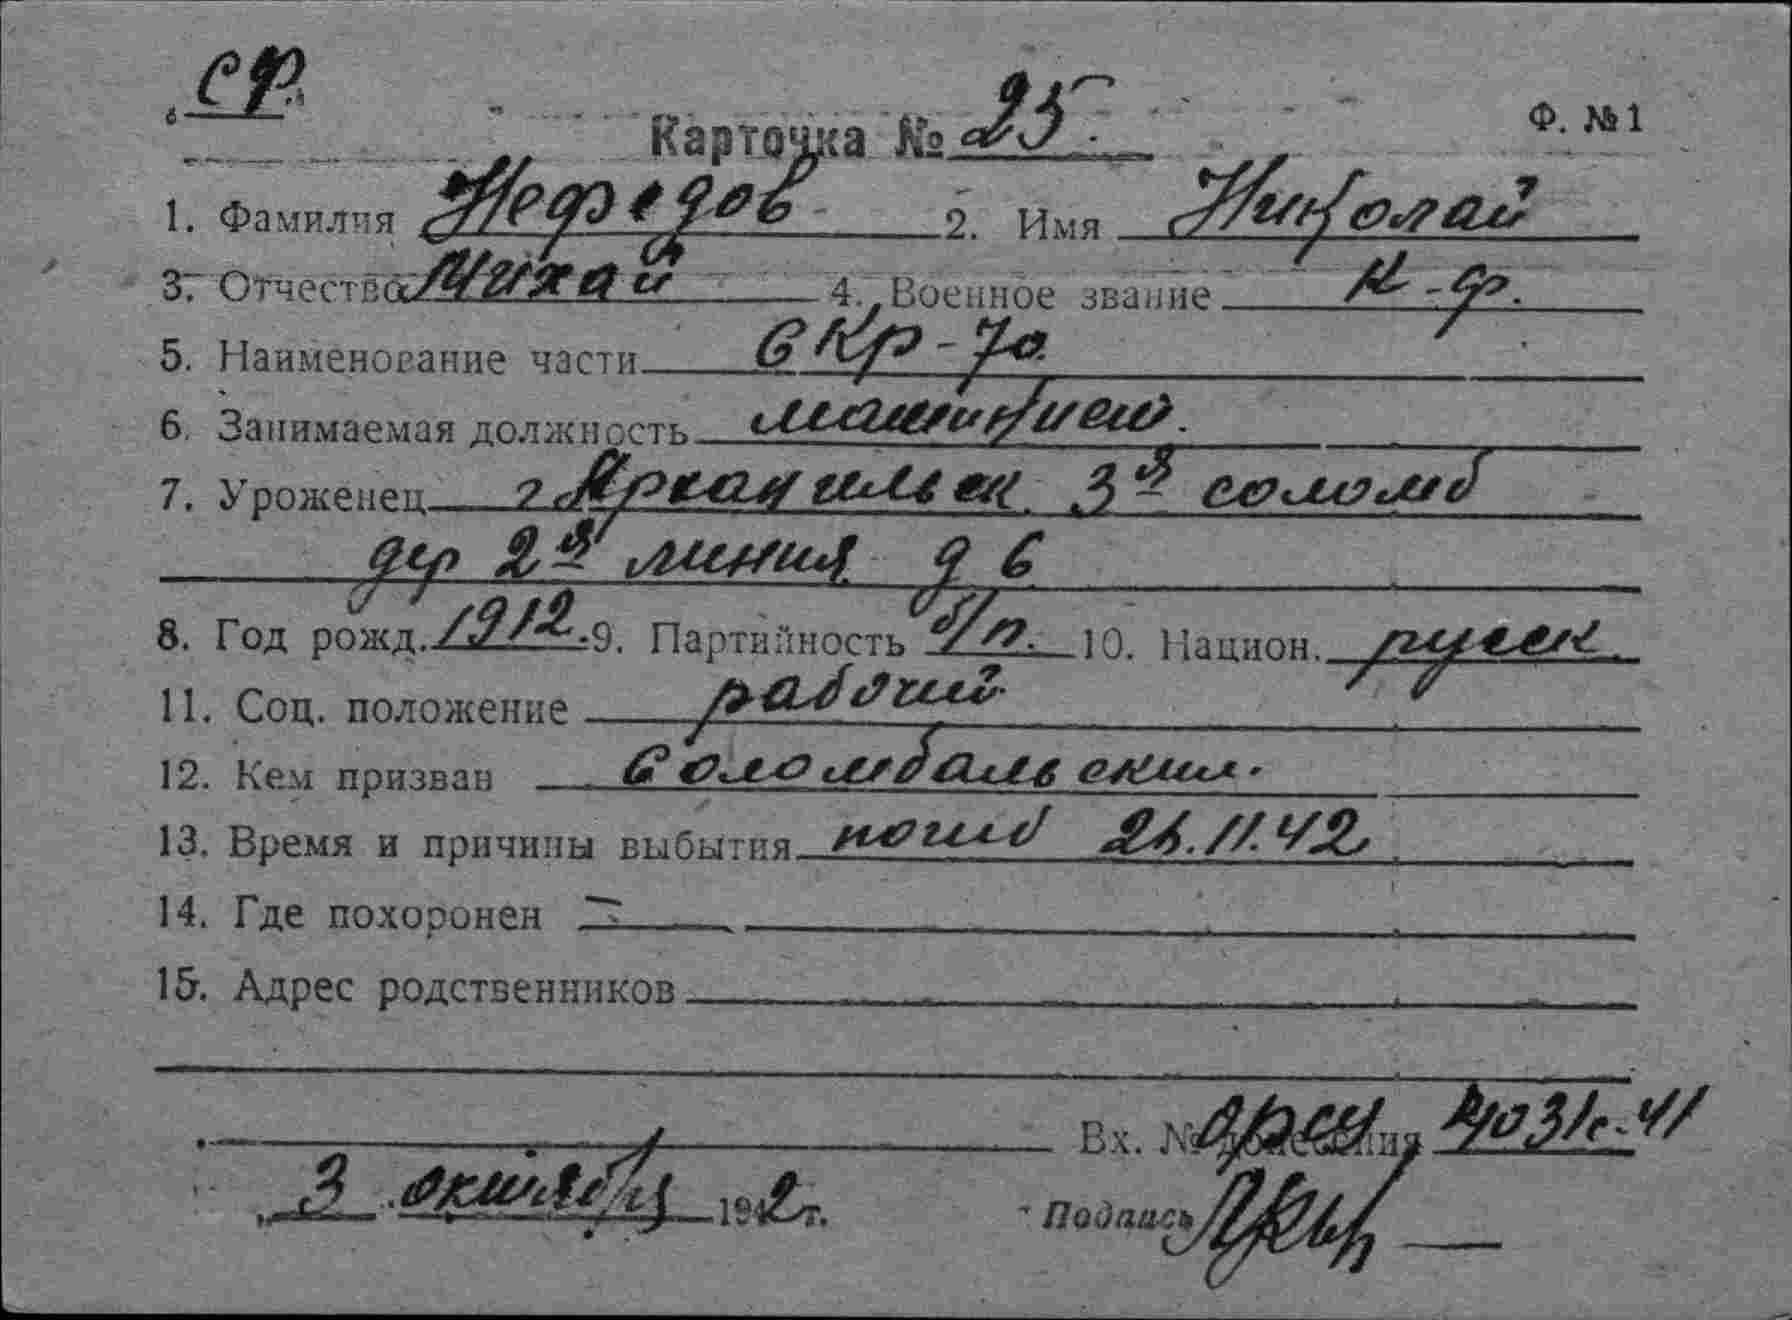 СФ.
Карточка № 25. Ф. №1
1. Фамилия Нефедов 2. Имя Николай
3. Отчество Михай 4. Военное звание к-ф.
5. Наименование части СКр-70
6. Занимаемая должность машинист.
7. Уроженец г Архангельск. 3я соломб
дер 2я линия д 6
8. Год рожд. 1912. 9. Партийность б/п. 10. Национ. русск.
11. Соц. положение рабочий
12. Кем призван Соломбальским.
13. Время и причины выбытия погиб 11.42
14. Где похоронен —
15. Адрес родственников
Вх. № донесения
3 октября 1942 г. Подпись